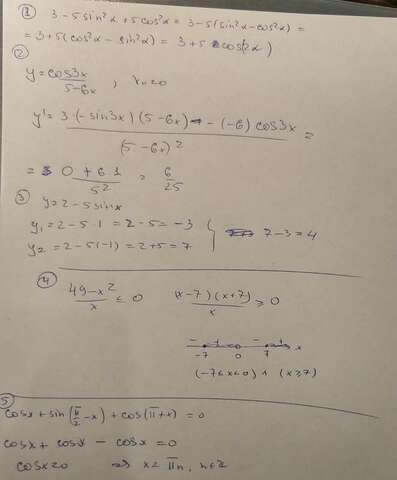 ① 3-5sin²α+5cos²α = 3-5(sin²α-cos²α) =
= 3+5(cos²α - sin²α) = 3+5 cos(2α)
②
y = cos3x / 5-6x , x₀=0
y' = 3·(-sin3x)(5-6x) - (-6)cos3x / (5-6x)² =
= 0+6·1 / 5² = 6/25
③ y=2-5sinx
y₁=2-5·1 = 2-5 = -3
y₂=2-5(-1) = 2+5 = 7
7-3=4
④
49-x² / x ≤ 0 (x-7)(x+7) / x ≥ 0
- + - + x
-7 0 7
(-7≤x<0) ∧ (x≥7)
⑤
cosx + sin(π/2 -x) + cos(π+x) = 0
cosx + cosx - cosx = 0
cosx=0 => x= πn, n∈Z